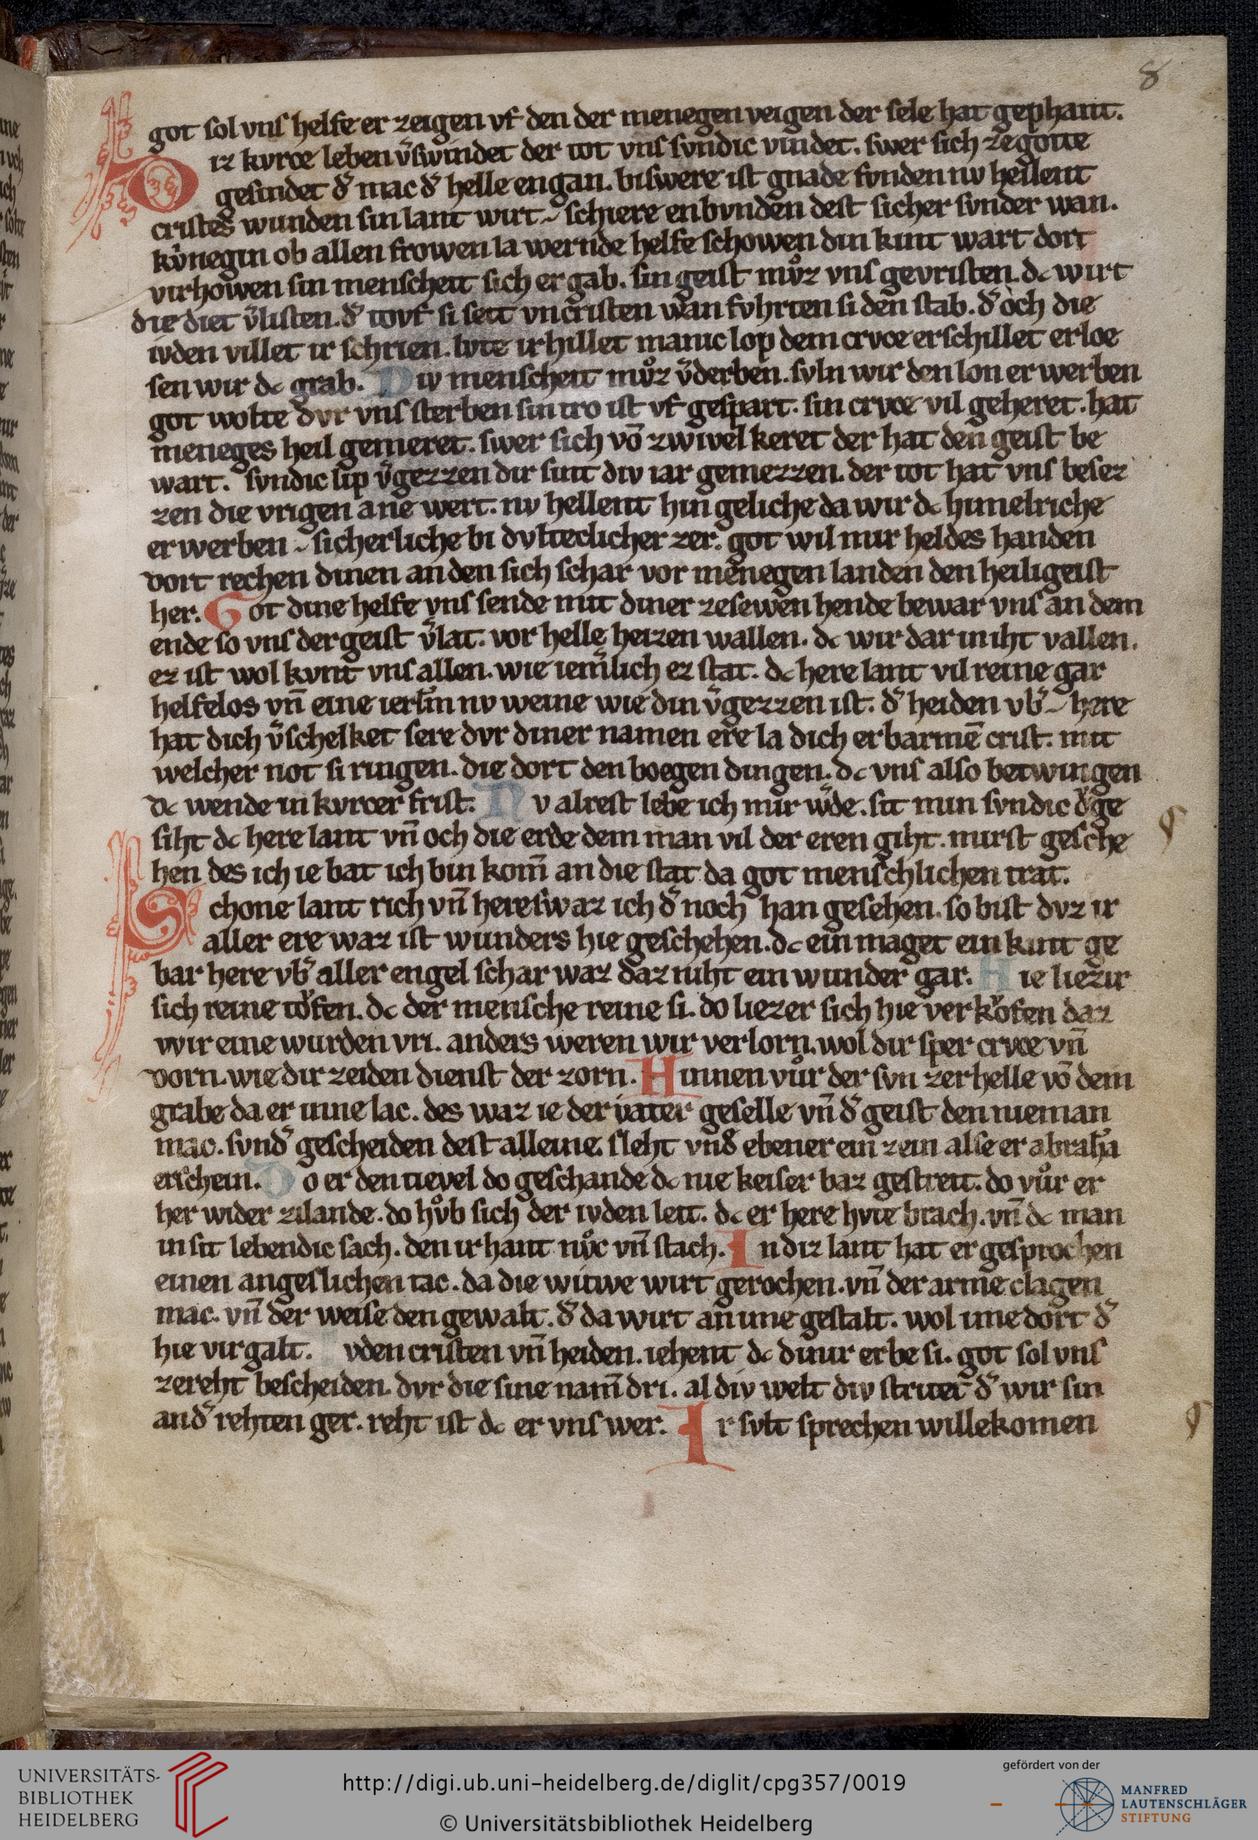 8
got sol vns helfe er zeigen vf den der menegen veigen der sele hat gephant.
Diz kvrce leben v̾swindet der tot vns svndic vindet. swer sich ze gotte
gesindet d̾ mac d̾ helle engan. bi swere ist gnade fvnden nv heilent
cristes wunden sin lant wirt schiere enbvnden dest sicher svnder wan.
kvnegin ob allen frowen la wernde helfe schowen din kint wart dort
virhowen sin menscheit sich er gab. sin geist mvͦz vns gevristen. dc wirt
die diet v̾listen. d̾ tovf si seit vncristen wan fvhrten si den stab. d̾ och die
ivden villet ir schrien. lvte irhillet manic lop dem crvce erschillet erloe
sen wir dc grab. Div menscheit mvͦz v̾derben. svln wir den lon er werben
got wolte dvr vns sterben sin tro ist vf gespart. sin crvce vil geheret. hat
meneges heil gemeret. swer sich vō zwivel keret der hat den geist be
wart. svndic lip v̾gezzen dir sint div iar gemezzen. der tot hat vns besez
zen die vrigen ane wert. nv hellent hin geliche da wir dc himelriche
er werben sicherliche bi dvlteclicher zer. got wil mir heldes handen
dort rechen dinen anden sich schar vor menegen landen den heiligeist
her. Got dine helfe vns sende mit diner zesewen hende bewar vns an dem
ende so vns der geist v̾lat. vor helle heizen wallen. dc wir dar in iht vallen.
ez ist wol kvnt vns allen. wie iem̾lich ez stat. dc here lant vil reine gar
helfelos vn̄ eine ierl̾m nv weine wie din v̾gezzen ist. d̾ heiden vb̾ here
hat dich v̾schelket sere dvr diner namen ere la dich erbarmē crist. mit
welcher not si ringen. die dort den boegen dingen. dc vns also betwingen
dc wende in kvrcer frist. Nv alrest lebe ich mir w̾de. sit min svndic ovͦge
siht dc here lant vn̄ och die erde dem man vil der eren giht. mirst gesche
hen des ich ie bat ich bin kom̄ an die stat da got menschlichen trat.
Schone lant rich vn̄ here swaz ich d̾ noch han gesehen. so bist dvz ir
aller ere waz ist wunders hie geschehen. dc ein maget ein kint ge
bar here vb̾ aller engel schar waz daz niht ein wunder gar. Hie liez ir
sich reine tofen. dc der mensche reine si. do liez er sich hie verkofen daz
wir eine wurden vri. anders weren wir verlorn. wol dir sper crvce vn̄
dorn. wie dir zeiden dienst der zorn. Hinnen vuͦr der svn zer helle vō dem
grabe da er inne lac. des waz ie der vater geselle vn̄ d̾ geist den nieman
mac. svnd̾ gescheiden dest alleine. sleht vnd̾ ebener ein zein alse er abrahā
erschein. Do er den tievel do geschande dc nie keiser baz gestreit. do vuͦr er
her wider zilande. do hvͦb sich der ivden leit. dc er here hvte brach. vn̄ dc man
in sit lebendic sach. den ir hant slvͦc vn̄ stach. In diz lant hat er gesprochen
einen angeslichen tac. da die witwe wirt gerochen. vn̄ der arme clagen
mac. vn̄ der weise den gewalt. d̾ da wirt an ime gestalt. wol ime dort d̾
hie virgalt. vden cristen vn̄ heiden. iehent dc diz ir erbe si. got sol vns
ze reht bescheiden. dvr die sine nam̄ dri. al div welt div stritet d̾ wir sin
an d̾ rehten ger. reht ist dc er vns wer. Ir svlt sprechen willekomen
UNIVERSITÄTS-
BIBLIOTHEK
HEIDELBERG
http://digi.ub.uni-heidelberg.de/diglit/cpg357/0019
© Universitätsbibliothek Heidelberg
gefördert von der
MANFRED
LAUTENSCHLÄGER
STIFTUNG